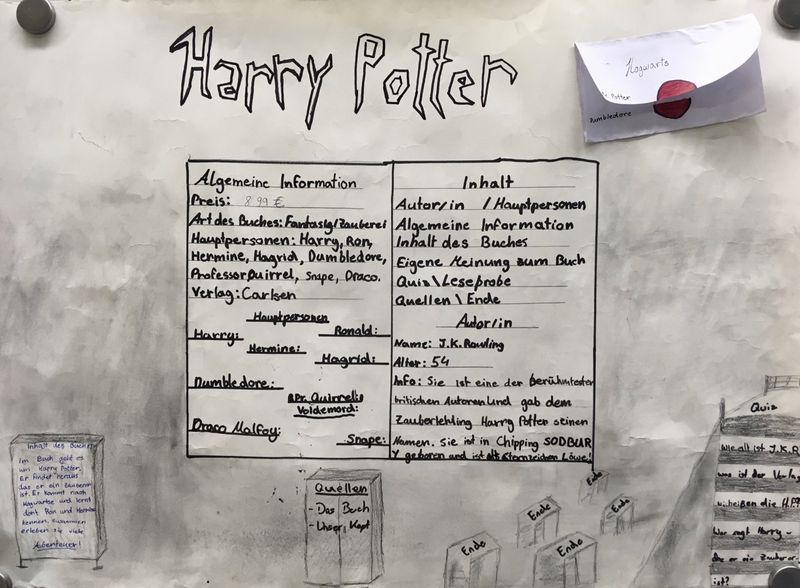 Harry Potter
Hogwarts
Potter
Dumbledore
Algemeine Information
Preis: 8,99 €
Art des Buches: Fantasig/Zauberei
Hauptpersonen: Harry, Ron,
Hermine, Hagrid, Dumbledore,
Professor Quirrel, Snape, Draco.
Verlag: Carlsen
Hauptpersonen
Harry:
Ronald:
Hermine:
Hagrid:
Dumbledore:
Pr. Quirrel is
Voldemord:
Draco Malfoy:
Snape:
Inhalt
Autor/in / Hauptpersonen
Algemeine Information
Inhalt des Buches
Eigene Meinung zum Buch
Quiz\Leseprobe
Quellen \ Ende
Autor/in
Name: J.K.Rowling
Alter: 54
Info: Sie ist eine der berühmtesten
britischen Autoren Und gab dem
Zauberlehling Harry Potter seinen
Namen. Sie ist in Chipping SODBUR
Y geboren und ist Sternzeichen Löwe!
Inhalt des Buches
Im Buch geht es
um Harry Potter,
Er findet heraus
das er ein Zauberer
ist. Er kommt nach
Hogwartse und lernt
dort Ron und Hermine
kennen. Zusammen
erleben sie viele
Abenteuer!
Quellen
- Das Buch
- Unser Kopf
Ende
Ende
Ende
Ende
Ende
Quiz
Wie alt ist J.K.R
was ist der Verlag
wie heißen die H.P?
Wer sagt Harry
das er ein Zauberer
ist?